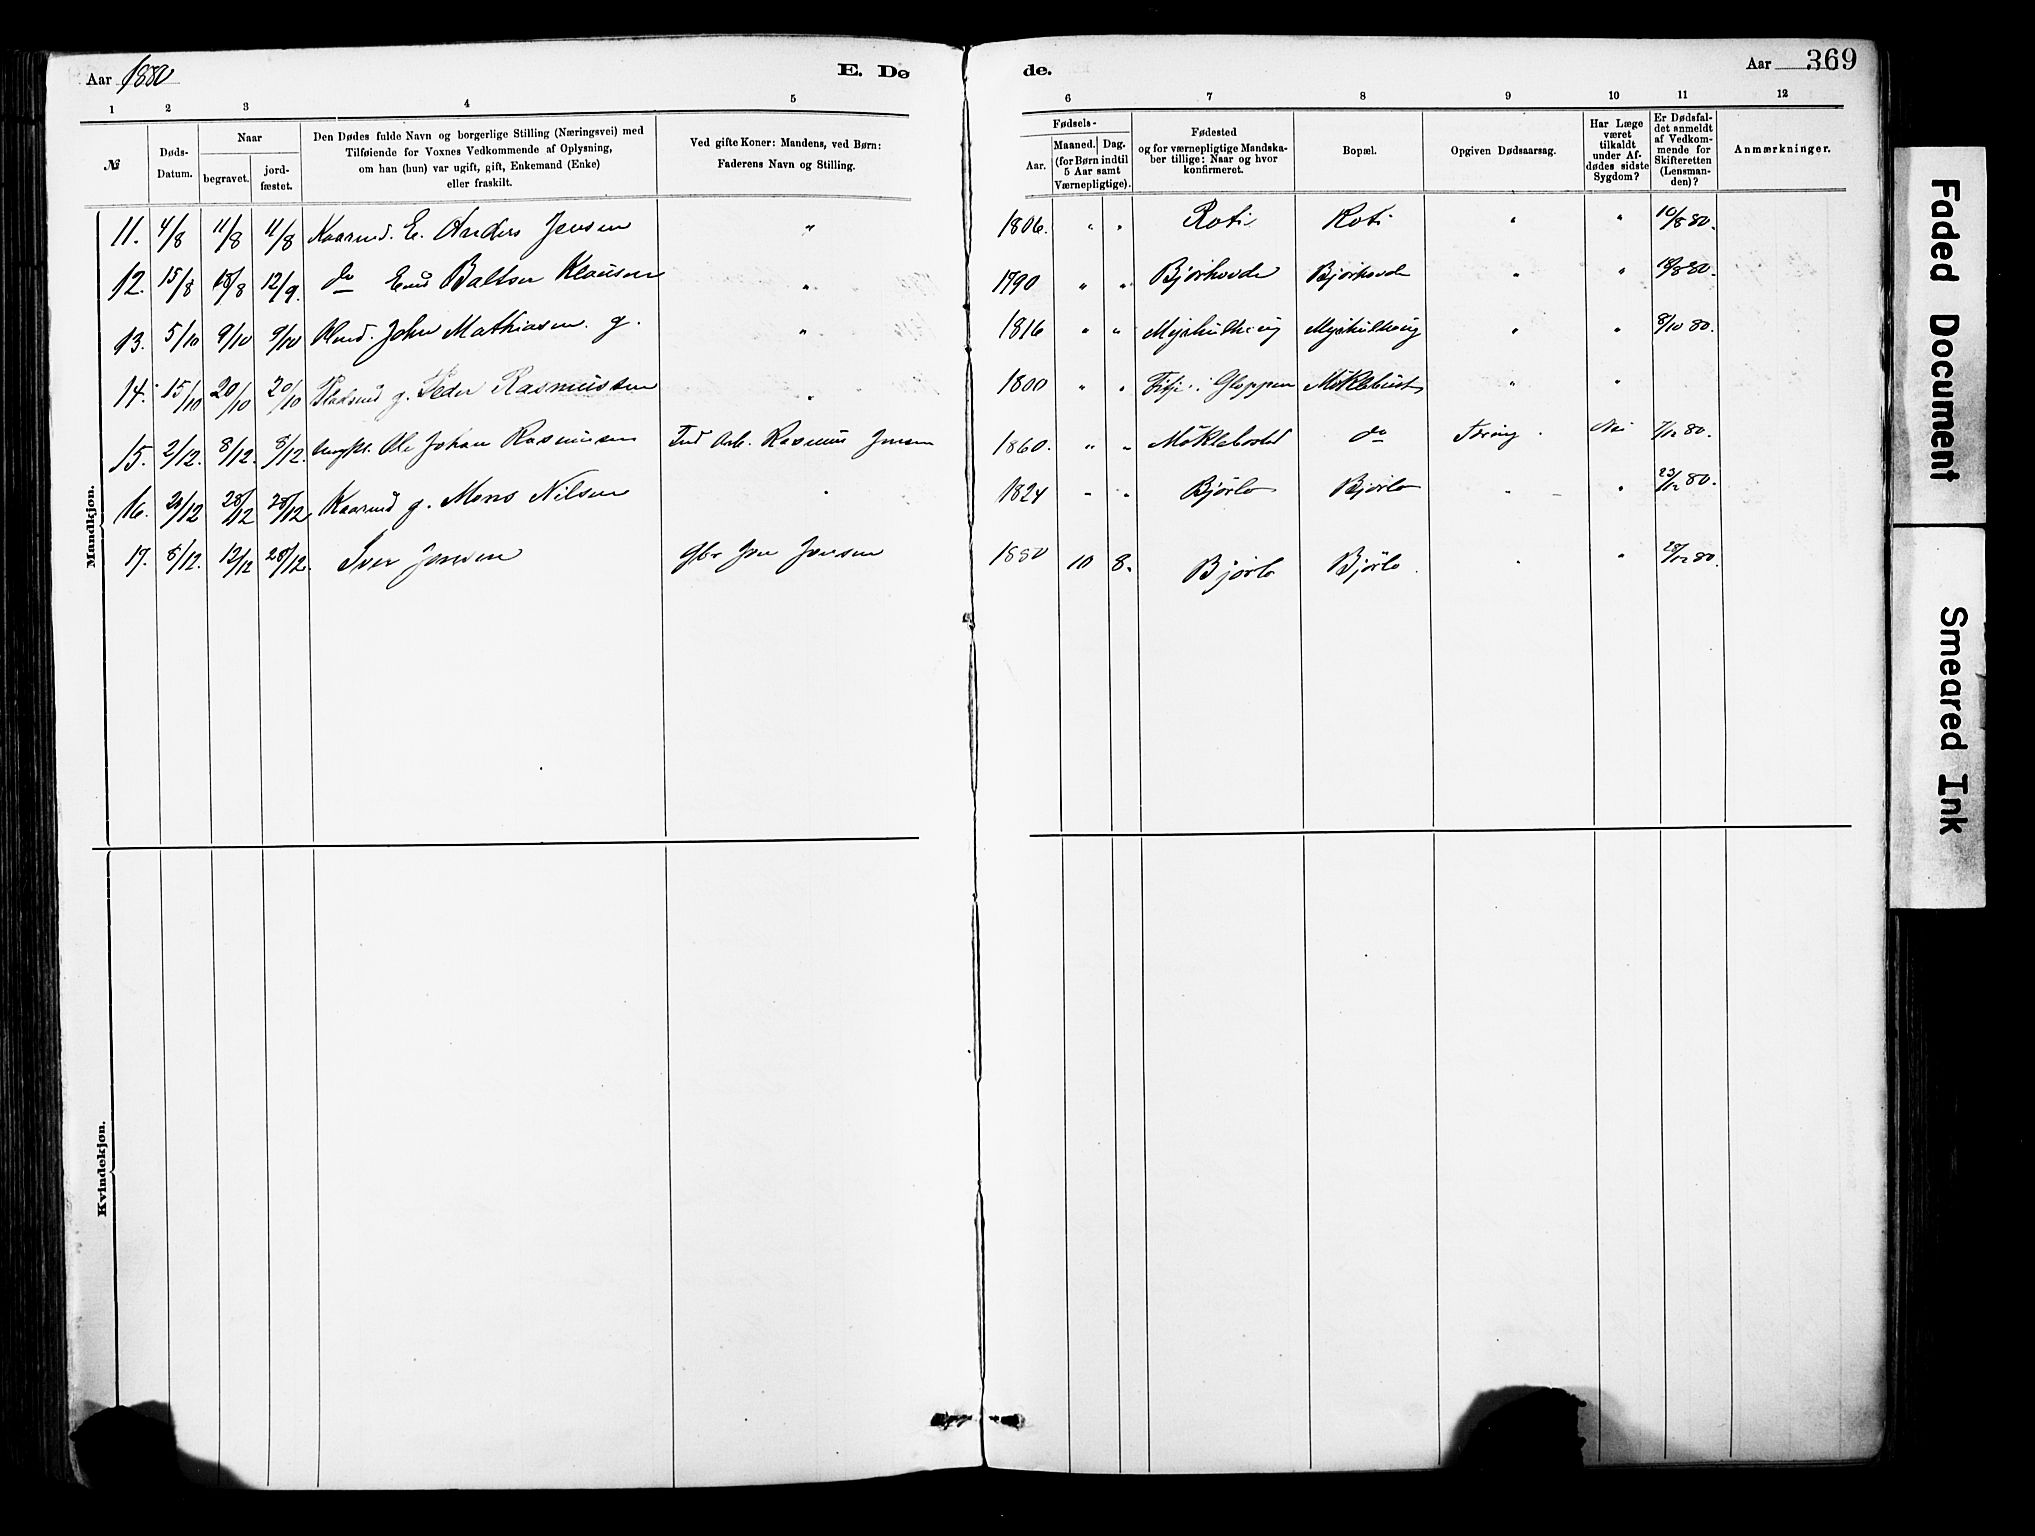 Aar 1880
E. Dø
de.
Aar 369
1 2 3 4 5 6 7 8 9 10 11 12
№
Døds-
Datum.
Naar
begravet.
jord-
fæstet.
Den Dødes fulde Navn og borgerlige Stilling (Næringsvei) med
Tilføiende for Voxnes Vedkommende af Oplysning,
om han (hun) var ugift, gift, Enkemand (Enke)
eller fraskilt.
Ved gifte Koner: Mandens, ved Børn:
Faderens Navn og Stilling.
Fødsels-
Aar.
Maaned. Dag.
(for Børn indtil
5 Aar samt
Værnepligtige).
Fødested
og for værnepligtige Mandska-
ber tillige: Naar og hvor
konfirmeret.
Bopæl.
Opgiven Dødsaarsag.
Har Læge
været
tilkaldt
under Af-
dødes sidste
Sygdom?
Er Dødsfal-
det anmeldt
af Vedkom-
mende for
Skifteretten
(Lensman-
den)?
Anmærkninger.
Mandkjøn.
11. 4/8 11/8 11/8 Kaarmd. E. Anders Jensen " 1806. " " Roti Roti " " 10/8 80.
12. 15/8 18/8 12/9. do Enkd Baltser Klausen " 1790 " " Bjørhovde Bjørhovde " " 18/8 80.
13. 5/10 9/10 9/10 John Mathiasen. g. " 1816 " " Myrhulhaug Myrhulhaug " " 8/10 80.
14. 15/10 20/10 20/10 Pladsmd g. Peder Rasmussen " 1800 " " Gloppen Møklebust " "
15. 2/12. 8/12. 8/12. Ungkl. Ole Johan Rasmussen Ind Arb. Rasmus Jensen 1860. " " Møklebostad do Tæring. Nei 7/12 80.
16. 21/12 28/12 28/12. Kaarmd g. Mons Nilsen " 1824 " " Bjørlo Bjørlo " " 23/12 80.
17. 8/12. 12/12 28/12. Iver Jensen Gbr Jens Jensen 1880 10 8. Bjørlo Bjørlo. " " 28/12 80.
Kvindekjøn.
Faded Document
Smeared Ink